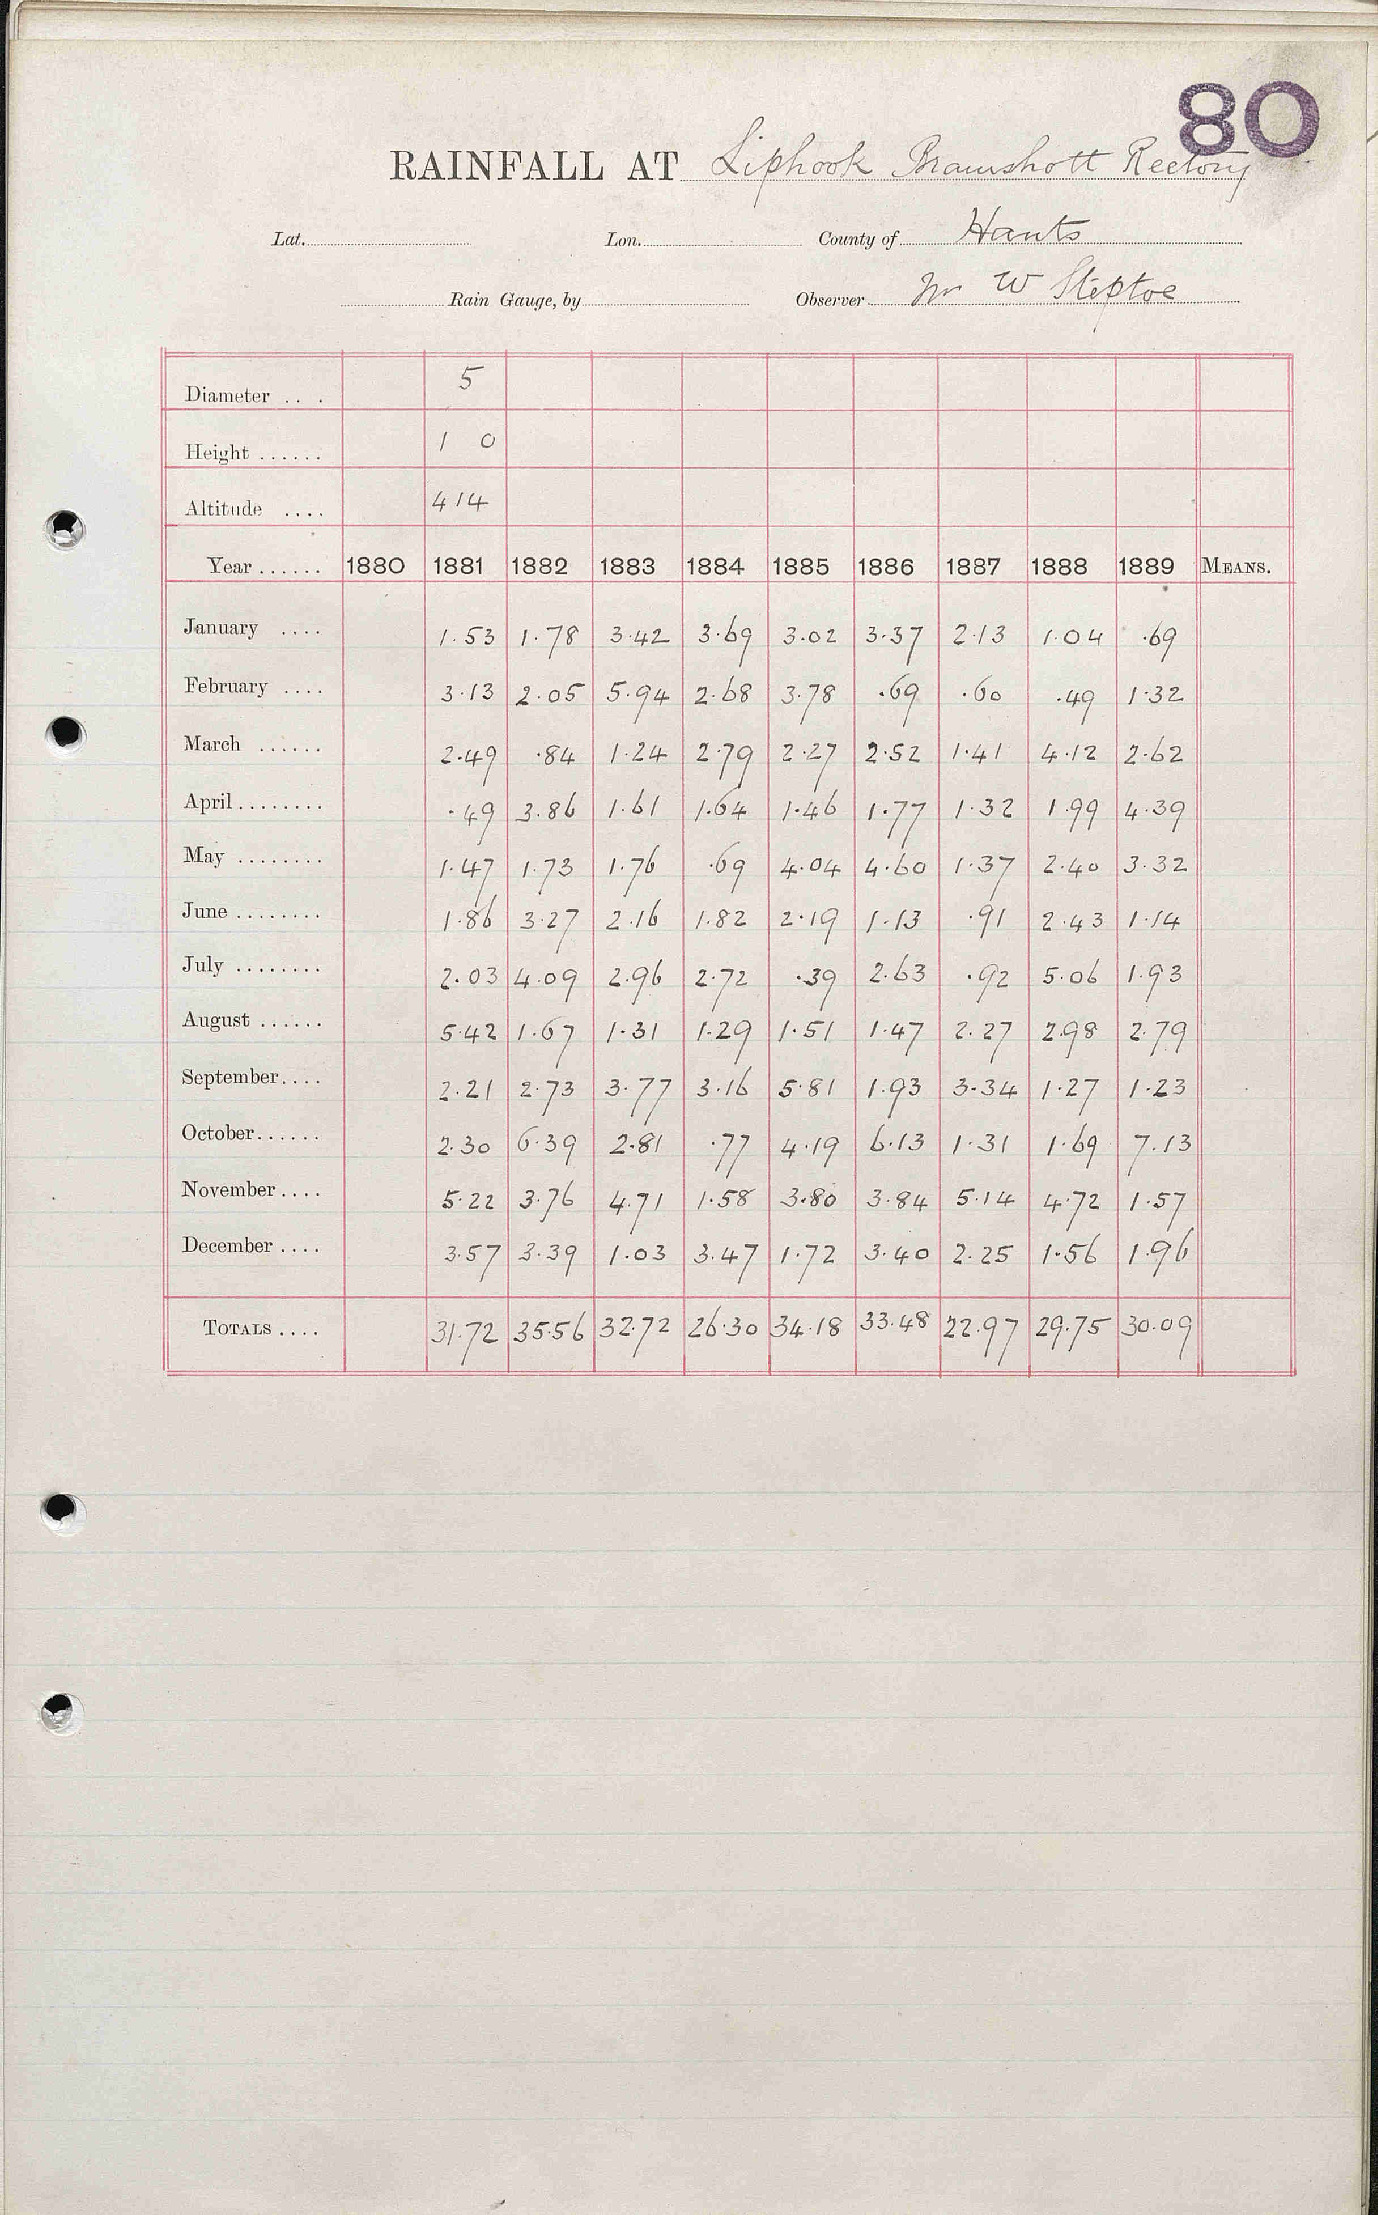 80
RAINFALL AT Liphook Bramshott Rectory
Lat. Lon. County of Hants
Rain Gauge, by Observer Mr W Steptoe
Diameter ... 5
Height ...... 1 0
Altitude .... 414
Year ...... 1880 1881 1882 1883 1884 1885 1886 1887 1888 1889 MEANS.
January .... 1.53 1.78 3.42 3.69 3.02 3.37 2.13 1.04 .69
February .... 3.13 2.05 5.94 2.68 3.78 .69 .60 .49 1.32
March ...... 2.49 .84 1.24 2.79 2.27 2.52 1.41 4.12 2.62
April ........ .49 3.86 1.61 1.64 1.46 1.77 1.32 1.99 4.39
May ........ 1.47 1.73 1.76 .69 4.04 4.60 1.37 2.40 3.32
June ........ 1.86 3.27 2.16 1.82 2.19 1.13 .91 2.43 1.14
July ........ 2.03 4.09 2.96 2.72 .39 2.63 .92 5.06 1.93
August ...... 5.42 1.67 1.31 1.29 1.51 1.47 2.27 2.98 2.79
September.... 2.21 2.73 3.77 3.16 5.81 1.93 3.34 1.27 1.23
October...... 2.30 6.39 2.81 .77 4.19 6.13 1.31 1.69 7.13
November.... 5.22 3.76 4.71 1.58 3.80 3.84 5.14 4.72 1.57
December .... 3.57 3.39 1.03 3.47 1.72 3.40 2.25 1.56 1.96
TOTALS .... 31.72 35.56 32.72 26.30 34.18 33.48 22.97 29.75 30.09